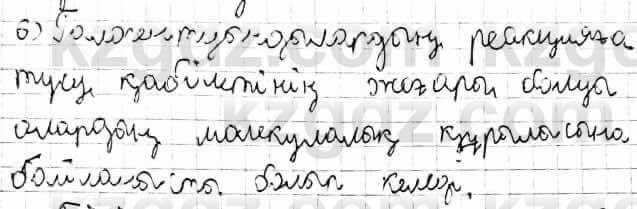 б) Галогентуындылардың реакцияға
түсу қабілетінің жоғары болуы
олардың молекулалық құрылысына
байланысты болып келеді.